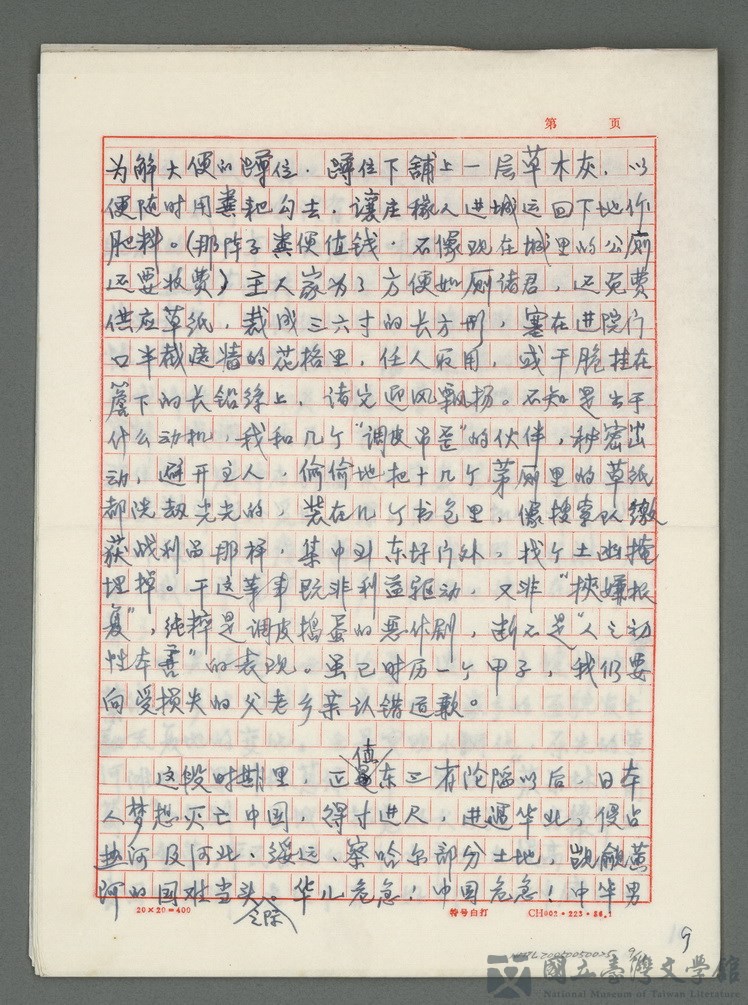 第　页
为解大便的蹲位．蹲位下铺上一层草木灰，以
便随时用粪耙勾去，让庄稼人进城运回下地作
肥料。(那阵子粪便值钱，不像现在城里的公厕
还要收费)主人家为了方便如厕诸君，还免费
供应草纸，裁成三六寸的长方形，塞在进院门
口半截庭墙的花格里，任人取用，或干脆挂在
簷下的长铅丝上，诸完迎风飘扬。不知是出于
什么动机，我和几个“调皮吊歪”的伙伴，秘密出
动，避开主人，偷偷地把十几个茅厕里的草纸
都洗劫光光的，装在几个书包里，像搜索队缴
获战利品那样，集中到东圩门外，找个土幽掩
埋掉。干这等事既非利益驱动，又非“挟嫌报
复”，纯粹是调皮捣蛋的恶作剧，断不是“人之初
性本善”的表现。虽已时历一个甲子，我仍要
向受损失的父老乡亲认错道歉。
值
这段时期里，正是东三省沦陷以后，日本
人梦想灭亡中国，得寸进尺，进逼华北，侵占
热河及河北、绥远、察哈尔部分土地，觊觎黄
河的国难当头。华儿危急！中国危急！中华男
之际
20×20=400　特号白打　CH002·223·86.1
9
國立臺灣文學館
National Museum of Taiwan Literature